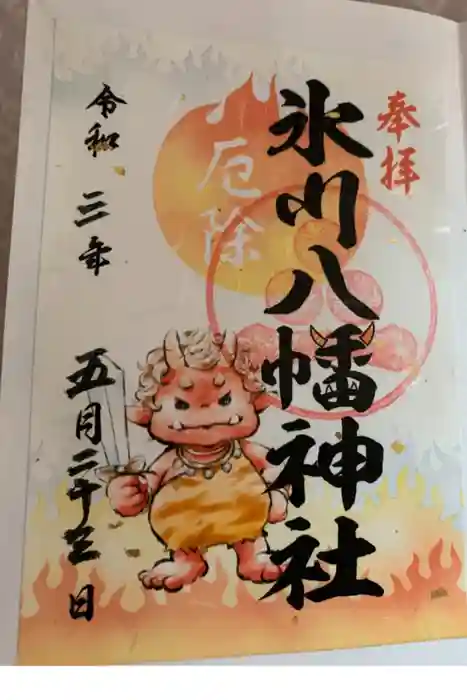 奉拝
氷川八幡神社
厄除
令和三年
五月二十三日